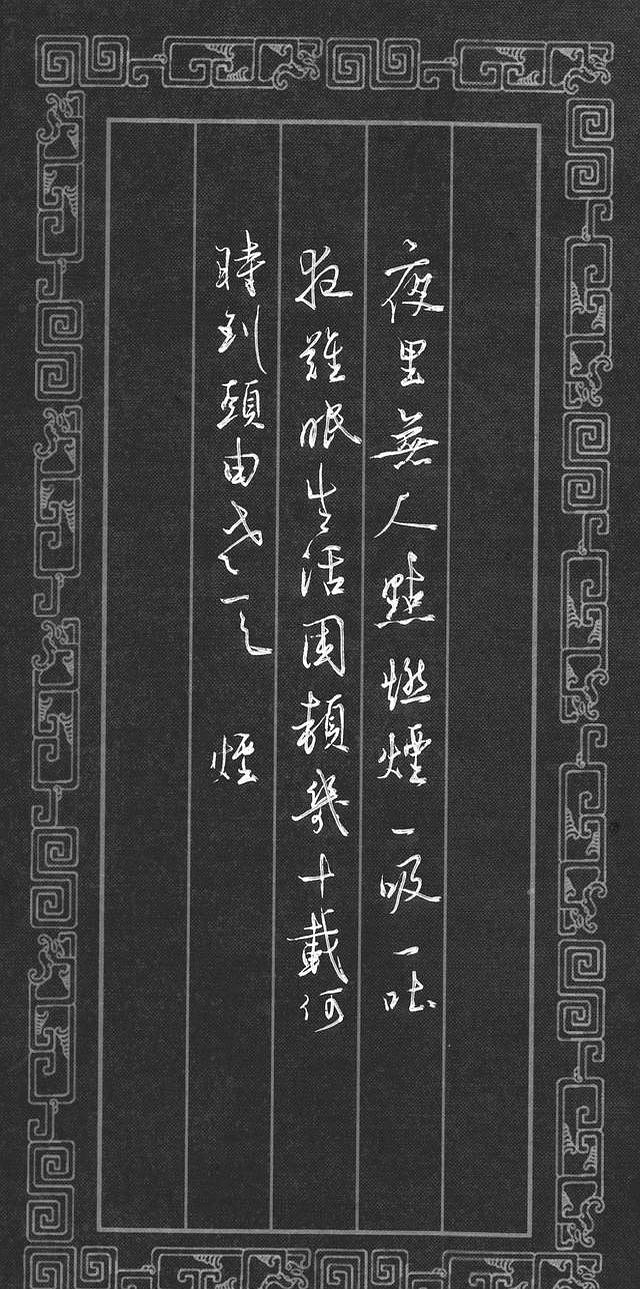 夜里無人點燃煙一吸一吐
夜難眠生活困頓幾十載何
時到頭由老天 煙